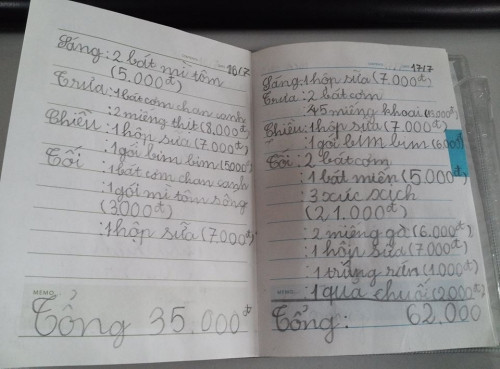 16/7
Sáng: 2 bát mì tôm
(5.000đ)
Trưa: 1 bát cơm chan canh
: 2 miếng thịt (8.000đ)
Chiều: 1 hộp sữa (7.000đ)
: 1 gói bim bim (5000đ)
Tối: 1 bát cơm chan canh
: 1 gói mì tôm sống
(3000đ)
: 1 hộp sữa (7.000đ)
MEMO
Tổng 35.000đ
17/7
Sáng: 1 hộp sữa (7.000đ)
Trưa: 2 bát cơm
45 miếng khoai
Chiều: 1 hộp sữa (7.000đ)
: 1 gói bim bim (6.000đ)
Tối: 2 bát cơm
: 1 bát miến (5.000đ)
: 3 xúc xích
(21.000đ)
: 2 miếng gà (6.000đ)
: 1 hộp sữa (7.000đ)
: 1 trứng rán (1.000đ)
MEMO : 1 quả chuối (2000đ)
Tổng: 62.000